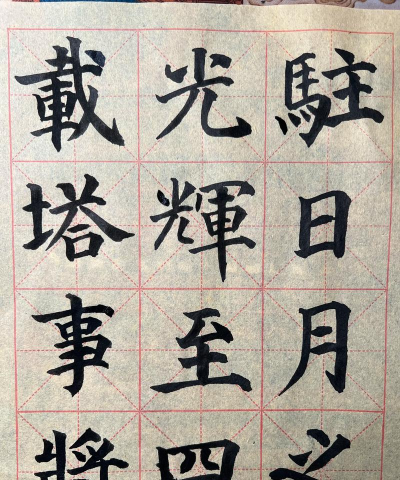 駐日月之
光輝至四
載塔事將